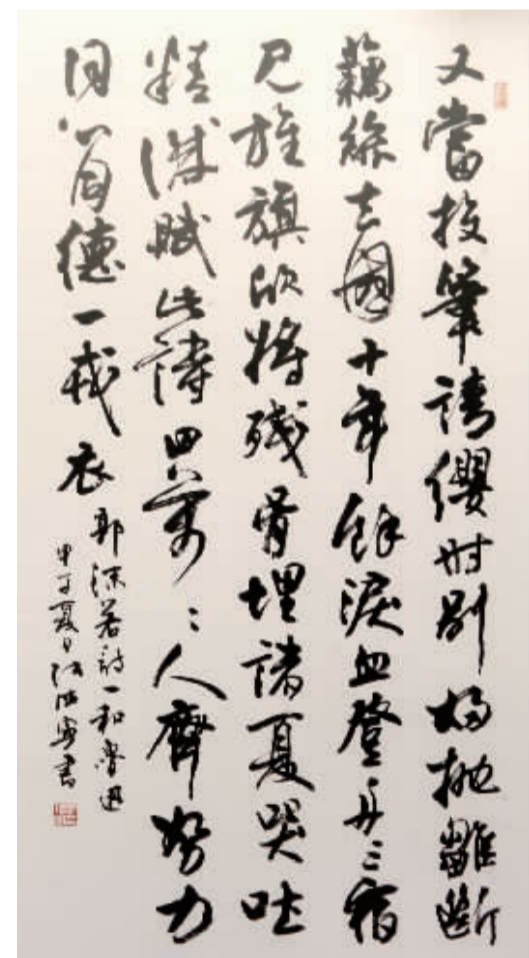 又當投筆請纓时別婦拋雛斷
藕絲去國十年餘淚血登舟三宿
見旌旗欣將殘骨埋諸夏哭吐
精誠賦此詩四萬々人齊努力
同心同德一戎衣
郭沫若詩一和魯迅
甲子夏日 書